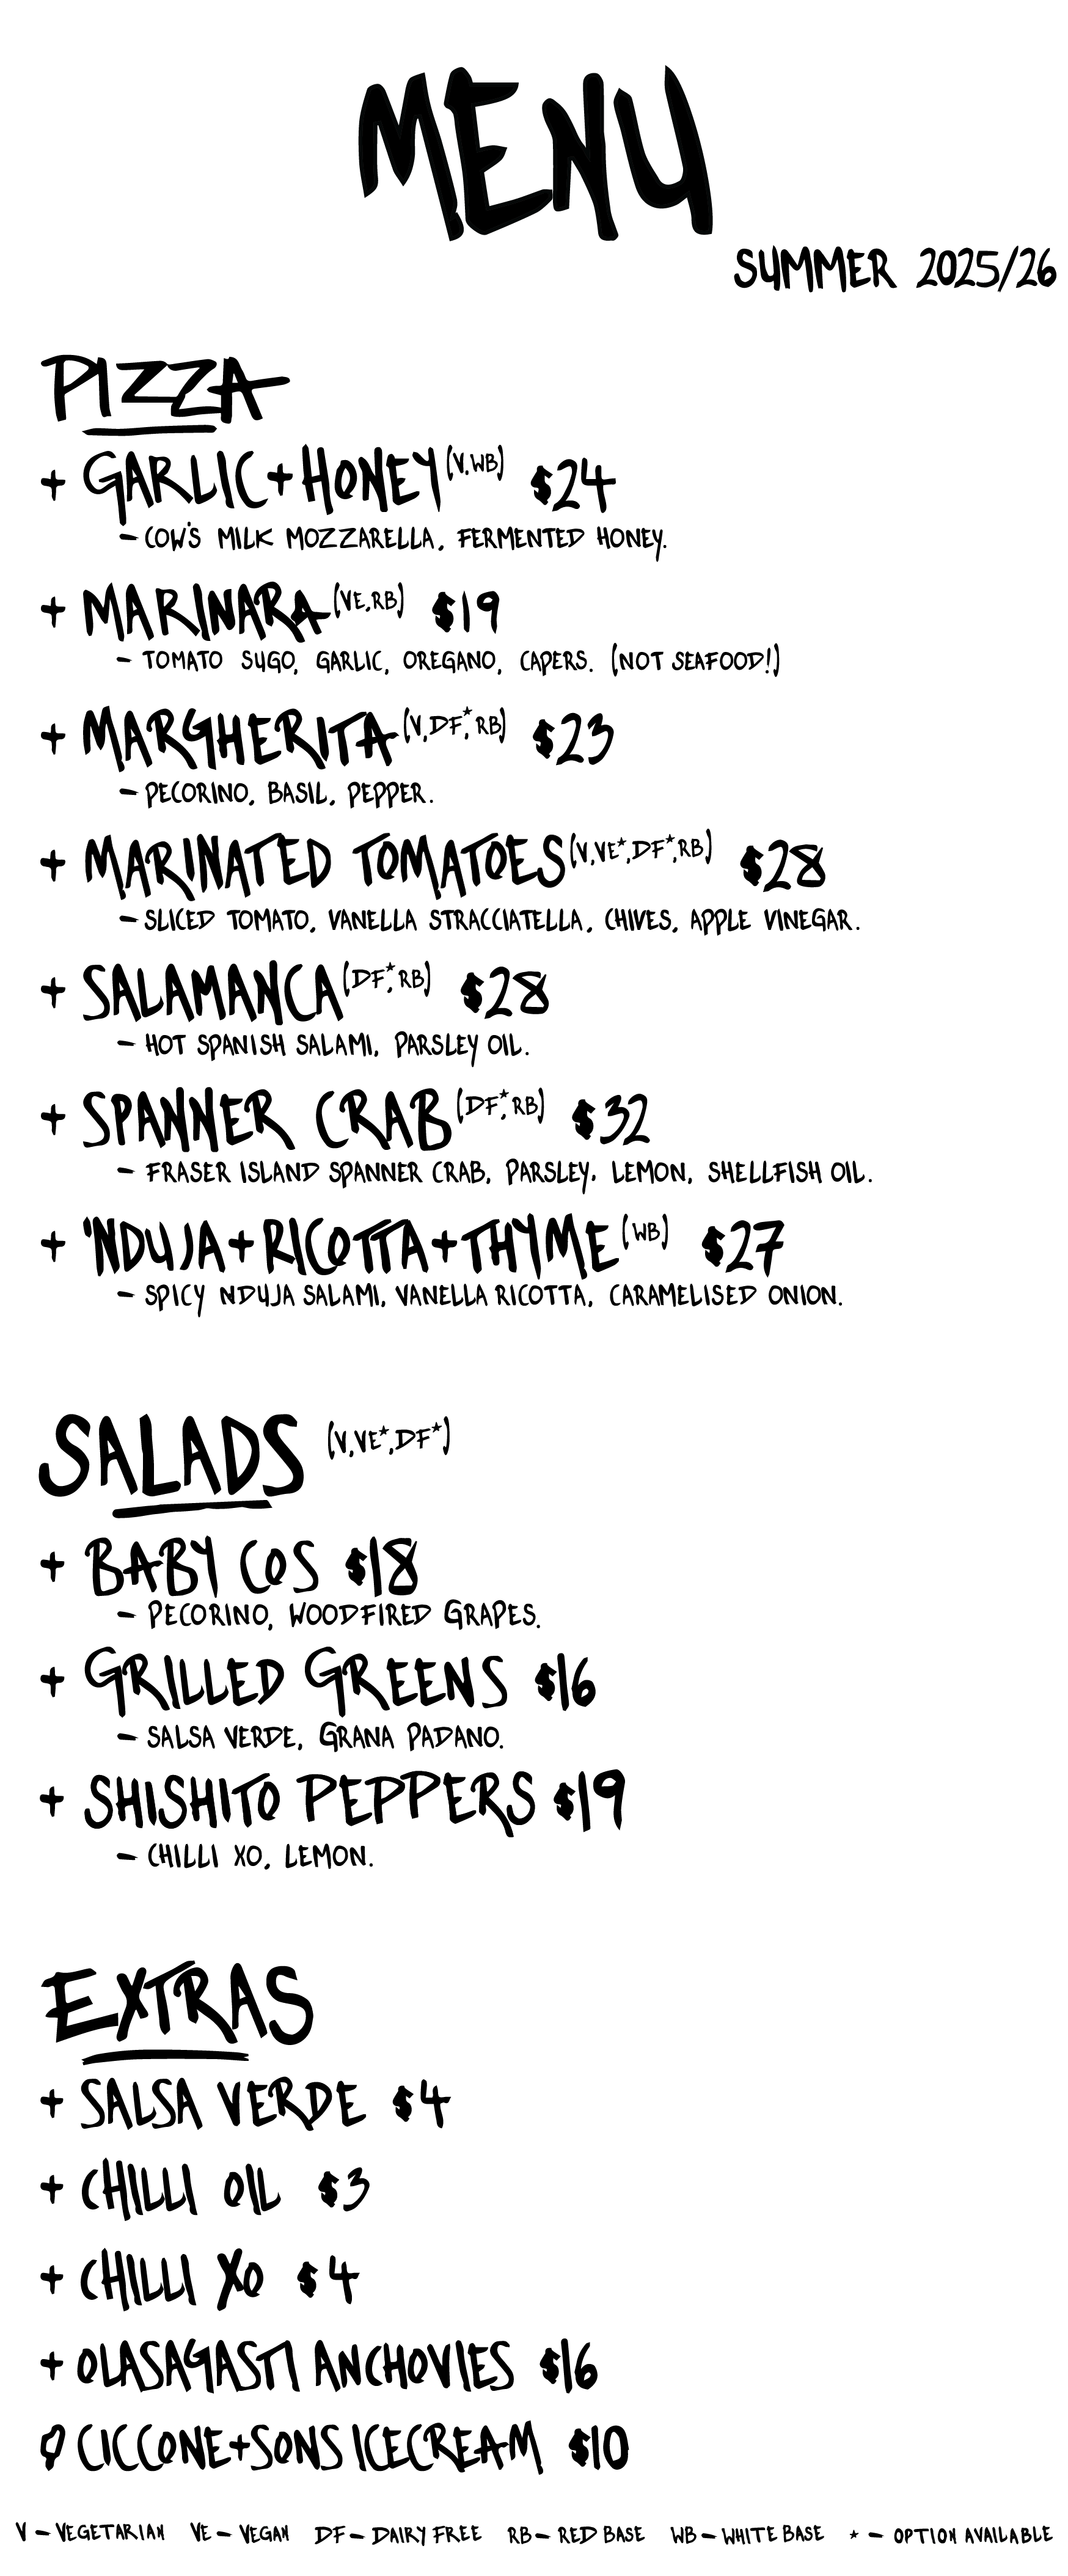 MENU
SUMMER 2025/26
PIZZA
+ GARLIC+HONEY (V,WB) $24
- COW'S MILK MOZZARELLA, FERMENTED HONEY.
+ MARINARA (VE,RB) $19
- TOMATO SUGO, GARLIC, OREGANO, CAPERS. (NOT SEAFOOD!)
+ MARGHERITA (V,DF*,RB) $23
- PECORINO, BASIL, PEPPER.
+ MARINATED TOMATOES (V,VE*,DF*,RB) $28
- SLICED TOMATO, VANELLA STRACCIATELLA, CHIVES, APPLE VINEGAR.
+ SALAMANCA (DF*,RB) $28
- HOT SPANISH SALAMI, PARSLEY OIL.
+ SPANNER CRAB (DF*,RB) $32
- FRASER ISLAND SPANNER CRAB, PARSLEY, LEMON, SHELLFISH OIL.
+ 'NDUJA+RICOTTA+THYME (WB) $27
- SPICY NDUJA SALAMI, VANELLA RICOTTA, CARAMELISED ONION.
SALADS (V,VE*,DF*)
+ BABY COS $18
- PECORINO, WOODFIRED GRAPES.
+ GRILLED GREENS $16
- SALSA VERDE, GRANA PADANO.
+ SHISHITO PEPPERS $19
- CHILLI XO, LEMON.
EXTRAS
+ SALSA VERDE $4
+ CHILLI OIL $3
+ CHILLI XO $4
+ OLASAGASTI ANCHOVIES $16
CICCONE+SONS ICECREAM $10
V - VEGETARIAN VE - VEGAN DF - DAIRY FREE RB - RED BASE WB - WHITE BASE * - OPTION AVAILABLE